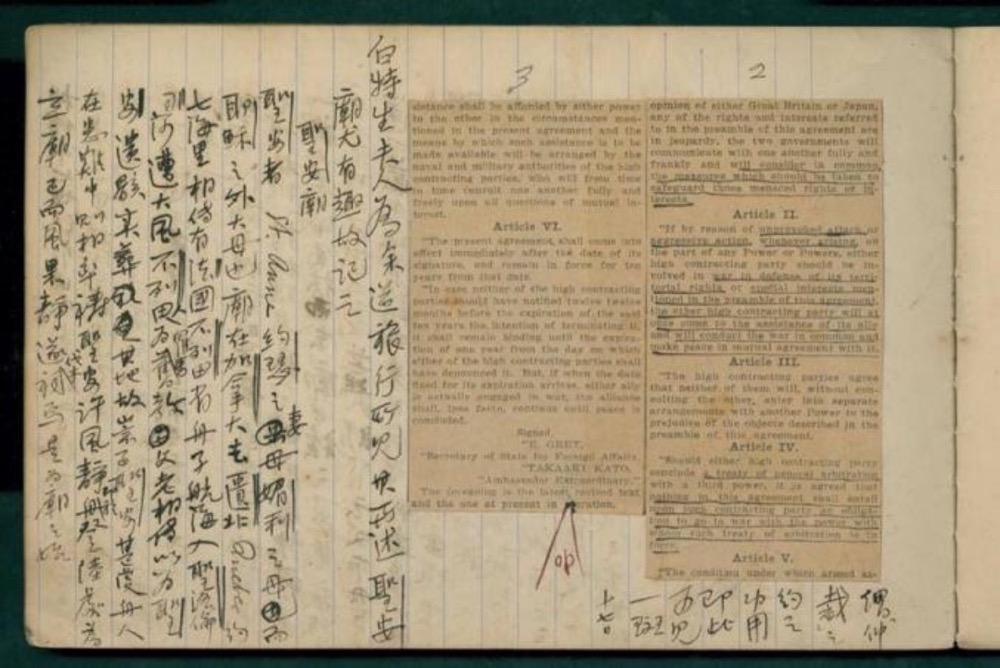 2
opinion of either Great Britain or Japan,
any of the rights and interests referred
to in the preamble of this agreement are
in jeopardy, the two governments will
communicate with one another fully and
frankly and will consider in common
the measures which should be taken to
safeguard those menaced rights or in-
terests.
Article II.
"If by reason of unprovoked attack or
aggressive action, whenever arising, on
the part of any Power or Powers, either
high contracting party should be in-
volved in war in defense of its terri-
torial rights or special interests men-
tioned in the preamble of this agreement,
the other high contracting party will at
once come to the assistance of its ally
and will conduct the war in common and
make peace in mutual agreement with it.
Article III.
"The high contracting parties agree
that neither of them will, without con-
sulting the other, enter into separate
arrangements with another Power to the
prejudice of the objects described in the
preamble of this agreement.
Article IV.
"Should either high contracting party
conclude a treaty of general arbitration
with a third power, it is agreed that
nothing in this agreement shall entail
upon such contracting party an obliga-
tion to go to war with the power with
whom such treaty of arbitration is in
force.
Article V.
"The conditions under which armed as-
約之
功用
即此
可見
一斑
3
sistance shall be afforded by either power
to the other in the circumstances men-
tioned in the present agreement and the
means by which such assistance is to be
made available will be arranged by the
naval and military authorities of the high
contracting parties, who will from time
to time consult one another fully and
freely upon all questions of mutual in-
terest.
Article VI.
"The present agreement shall come into
effect immediately after the date of its
signature, and remain in force for ten
years from that date.
"In case neither of the high contracting
parties should have notified twelve
months before the expiration of the said
ten years the intention of terminating it,
it shall remain binding until the expira-
tion of one year from the day on which
either of the high contracting parties shall
have denounced it. But, if when the date
fixed for its expiration arrives, either ally
is actually engaged in war, the alliance
shall, ipso facto, continue until peace is
concluded.
Signed,
"E. GREY,
"Secretary of State for Foreign Affairs.
"TAKAAKI KATO,
"Ambassador Extraordinary."
The foregoing is the latest revised text
and the one at present in operation.
白特生夫人為余道旅行所見其所述聖安
廟尤有趣故記之
聖安廟
聖安者 St. Anne 約瑟之妻母媚利之母而
耶穌之外大母也廟在加拿大去 北 Quebec 約
七海里相傳有法國不列田省舟子航海入聖洛倫
河遭大風不列田 父老相傳以為聖
安遺骸實葬其地故崇 聖安甚虔舟人
在患難中則相率禱聖安許風靜 登陸 為
立廟已而風果靜遂 是為廟之始